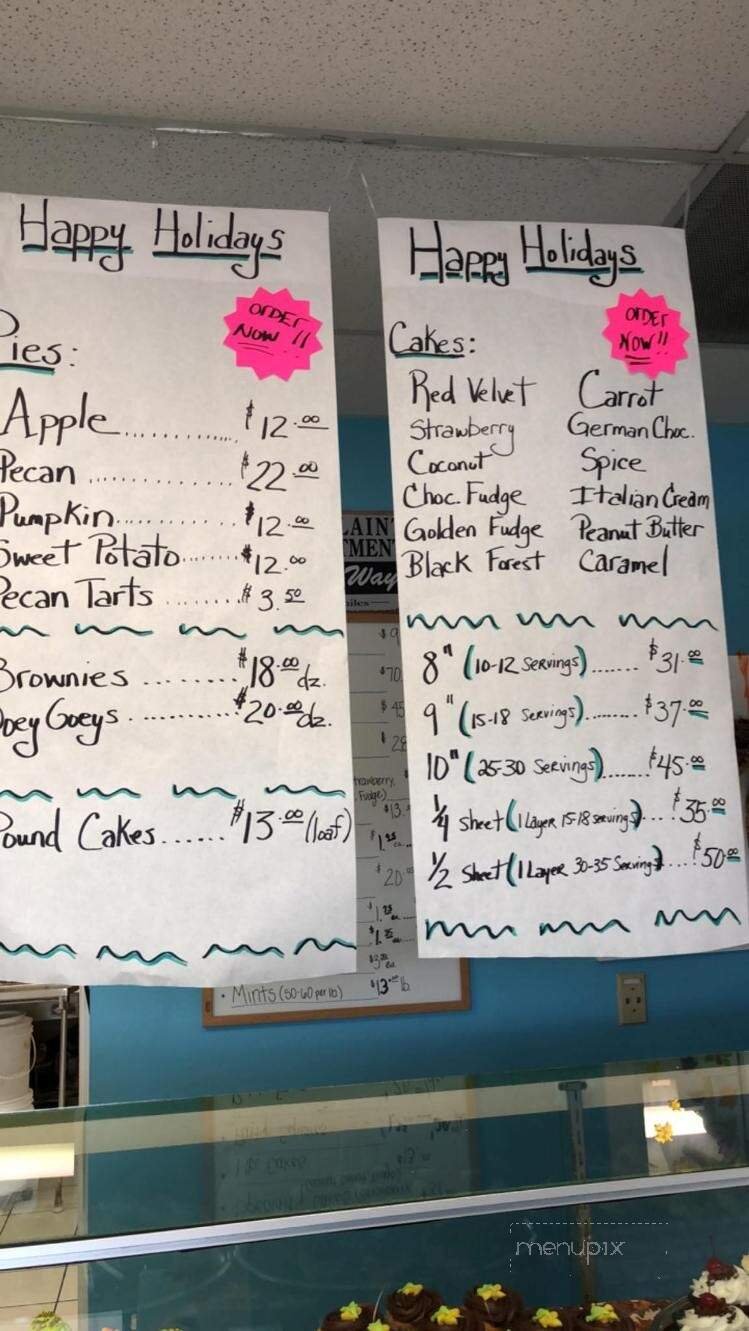 Happy Holidays
ORDER
NOW !!
Pies:
Apple............. $12.00
Pecan ............ $22.00
Pumpkin........... $12.00
Sweet Potato....... $12.00
Pecan Tarts ....... $3.50
Brownies ........ $18.00 dz.
Gooey Goeys ........... $20.00 dz.
Pound Cakes...... $13.00 (loaf)
Happy Holidays
ORDER
NOW!!
Cakes:
Red Velvet Carrot
Strawberry German Choc.
Coconut Spice
Choc. Fudge Italian Cream
Golden Fudge Peanut Butter
Black Forest Caramel
8" (10-12 Servings)....... $31.00
9" (15-18 Servings)......... $37.00
10" (25-30 Servings)....... $45.00
1/4 sheet (1 Layer 15-18 servings)... $35.00
1/2 sheet (1 Layer 30-35 Servings)... $50.00
Way
$13.
$20
• Mints (50-60 per lb) $13.00 lb
menupix